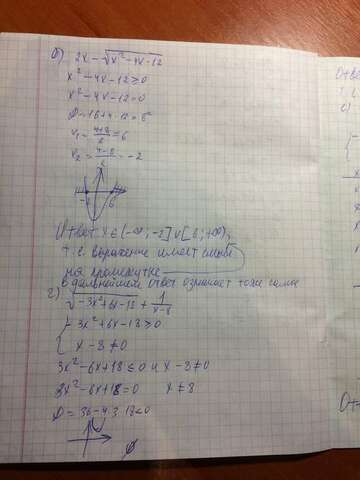 б) 2x - √(x² - 4x - 12)
x² - 4x - 12 ≥ 0
x² - 4x - 12 = 0
D = 16 + 4 · 12 = 8²
x₁ = (4+8)/2 = 6
x₂ = (4-8)/2 = -2
-2 6
Ответ: x ∈ (-∞; -2] ∪ [6; +∞),
т.е. выражение имеет смысл
на промежутке
в дальнейшем ответ означает тоже самое
г) √(-3x² + 6x - 18) + 1/(x-8)
{ -3x² + 6x - 18 ≥ 0
x - 8 ≠ 0
3x² - 6x + 18 ≤ 0 и x - 8 ≠ 0
3x² - 6x + 18 = 0 x ≠ 8
D = 36 - 4 · 3 · 18 < 0
∅
Ответ
т.е.